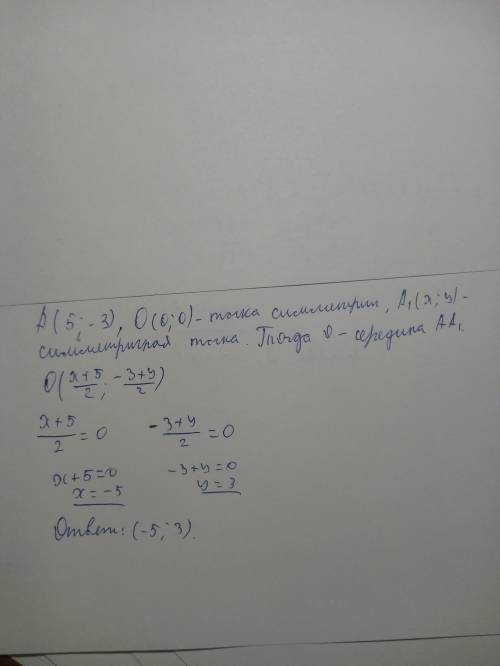 A(5;-3), O(0;0)- точка симметрии, A₁(x;y)-
симметричная точка. Тогда O - середина AA₁.
O(x+5/2; -3+y/2)
x+5/2=0 -3+y/2=0
x+5=0 -3+y=0
x=-5 y=3
Ответ: (-5;3).